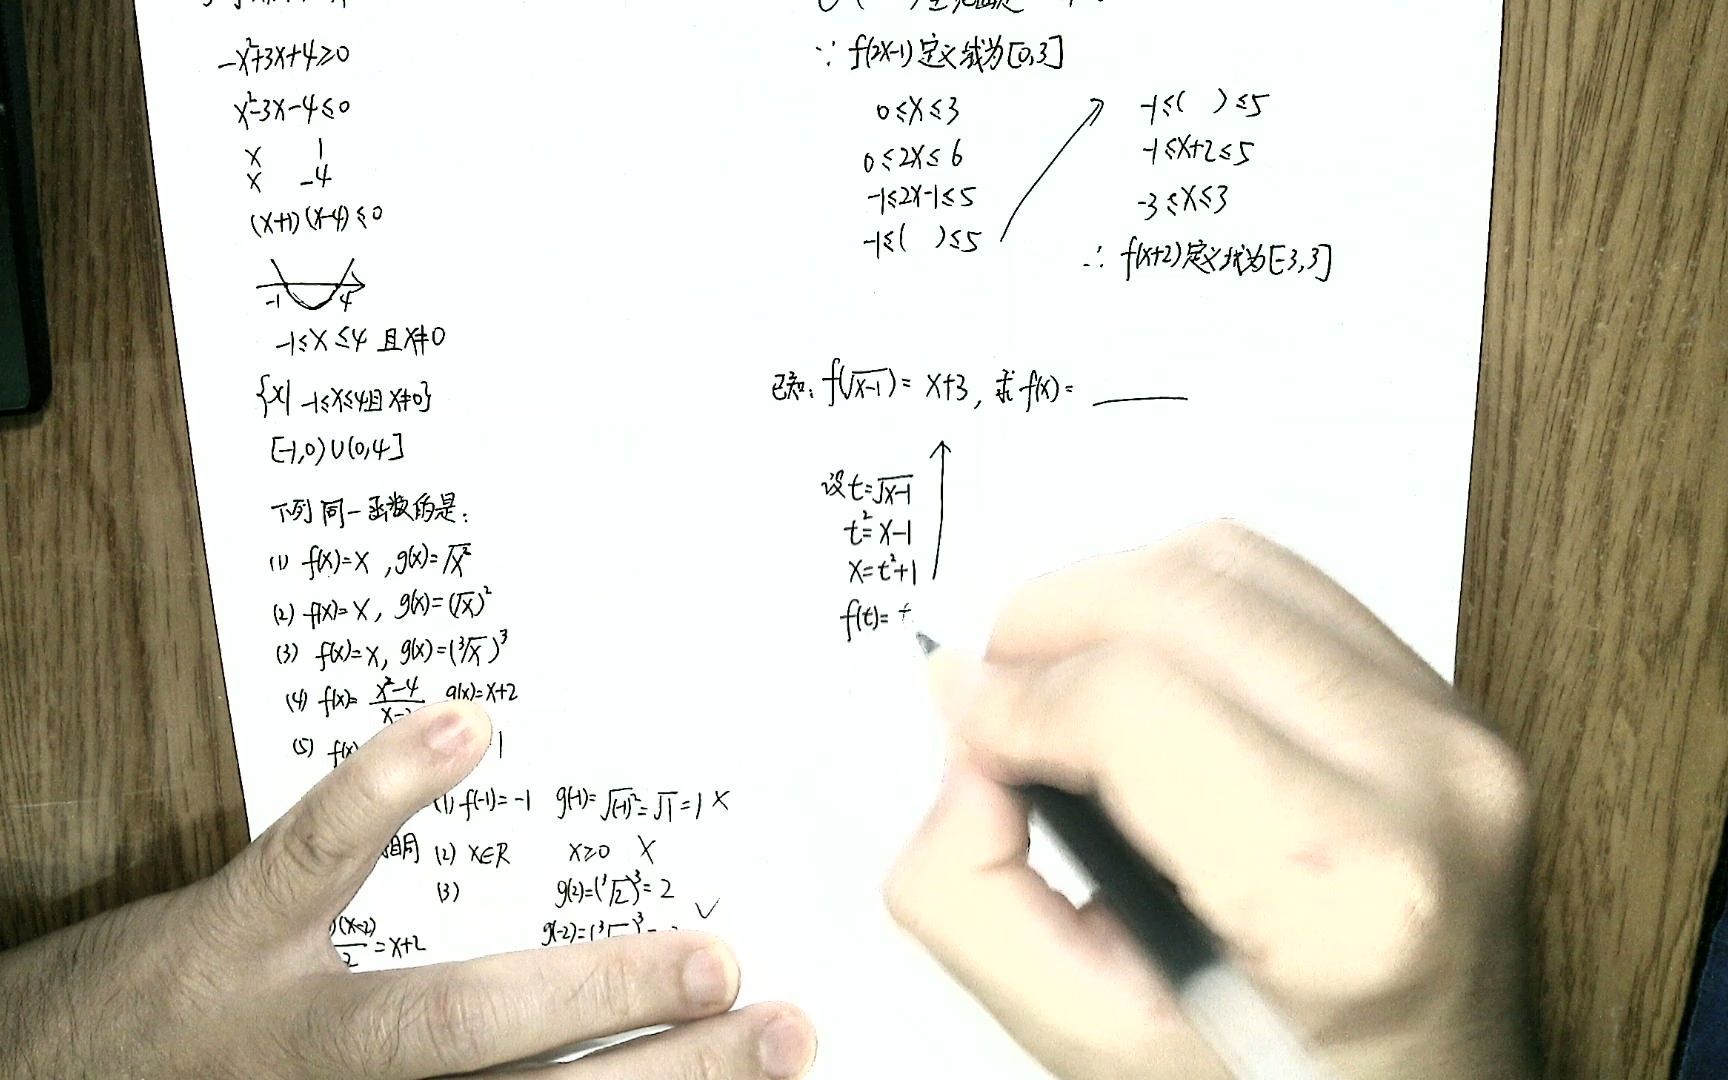 -x²+3x+4≥0
x²-3x-4≤0
x 1
x -4
(x+1)(x-4)≤0
-1 4
-1≤x≤4 且x≠0
{x| -1≤x≤4且x≠0}
[-1,0)∪(0,4]
下列同一函数的是:
(1) f(x)=x ,g(x)=√x²
(2) f(x)=x, g(x)=(√x)²
(3) f(x)=x, g(x)=(³√x)³
(4) f(x)= x²-4 / x- g(x)=x+2
(5) f(x) 1
(1) f(-1)=-1 g(-1)=√(-1)²=√1=1 ×
相同 (2) x∈R x≥0 ×
(3) g(2)=(³√2)³=2 √
)(x-2) / 2 =x+2 g(-2)=(³√ )³=
∵ f(2x-1)定义域为[0,3]
0≤x≤3
0≤2x≤6
-1≤2x-1≤5
-1≤( )≤5
-1≤( )≤5
-1≤x+2≤5
-3≤x≤3
∴ f(x+2)定义域为[-3,3]
已知: f(√x-1)= x+3, 求f(x)= ____
设t=√x-1
t²=x-1
x=t²+1
f(t)= t